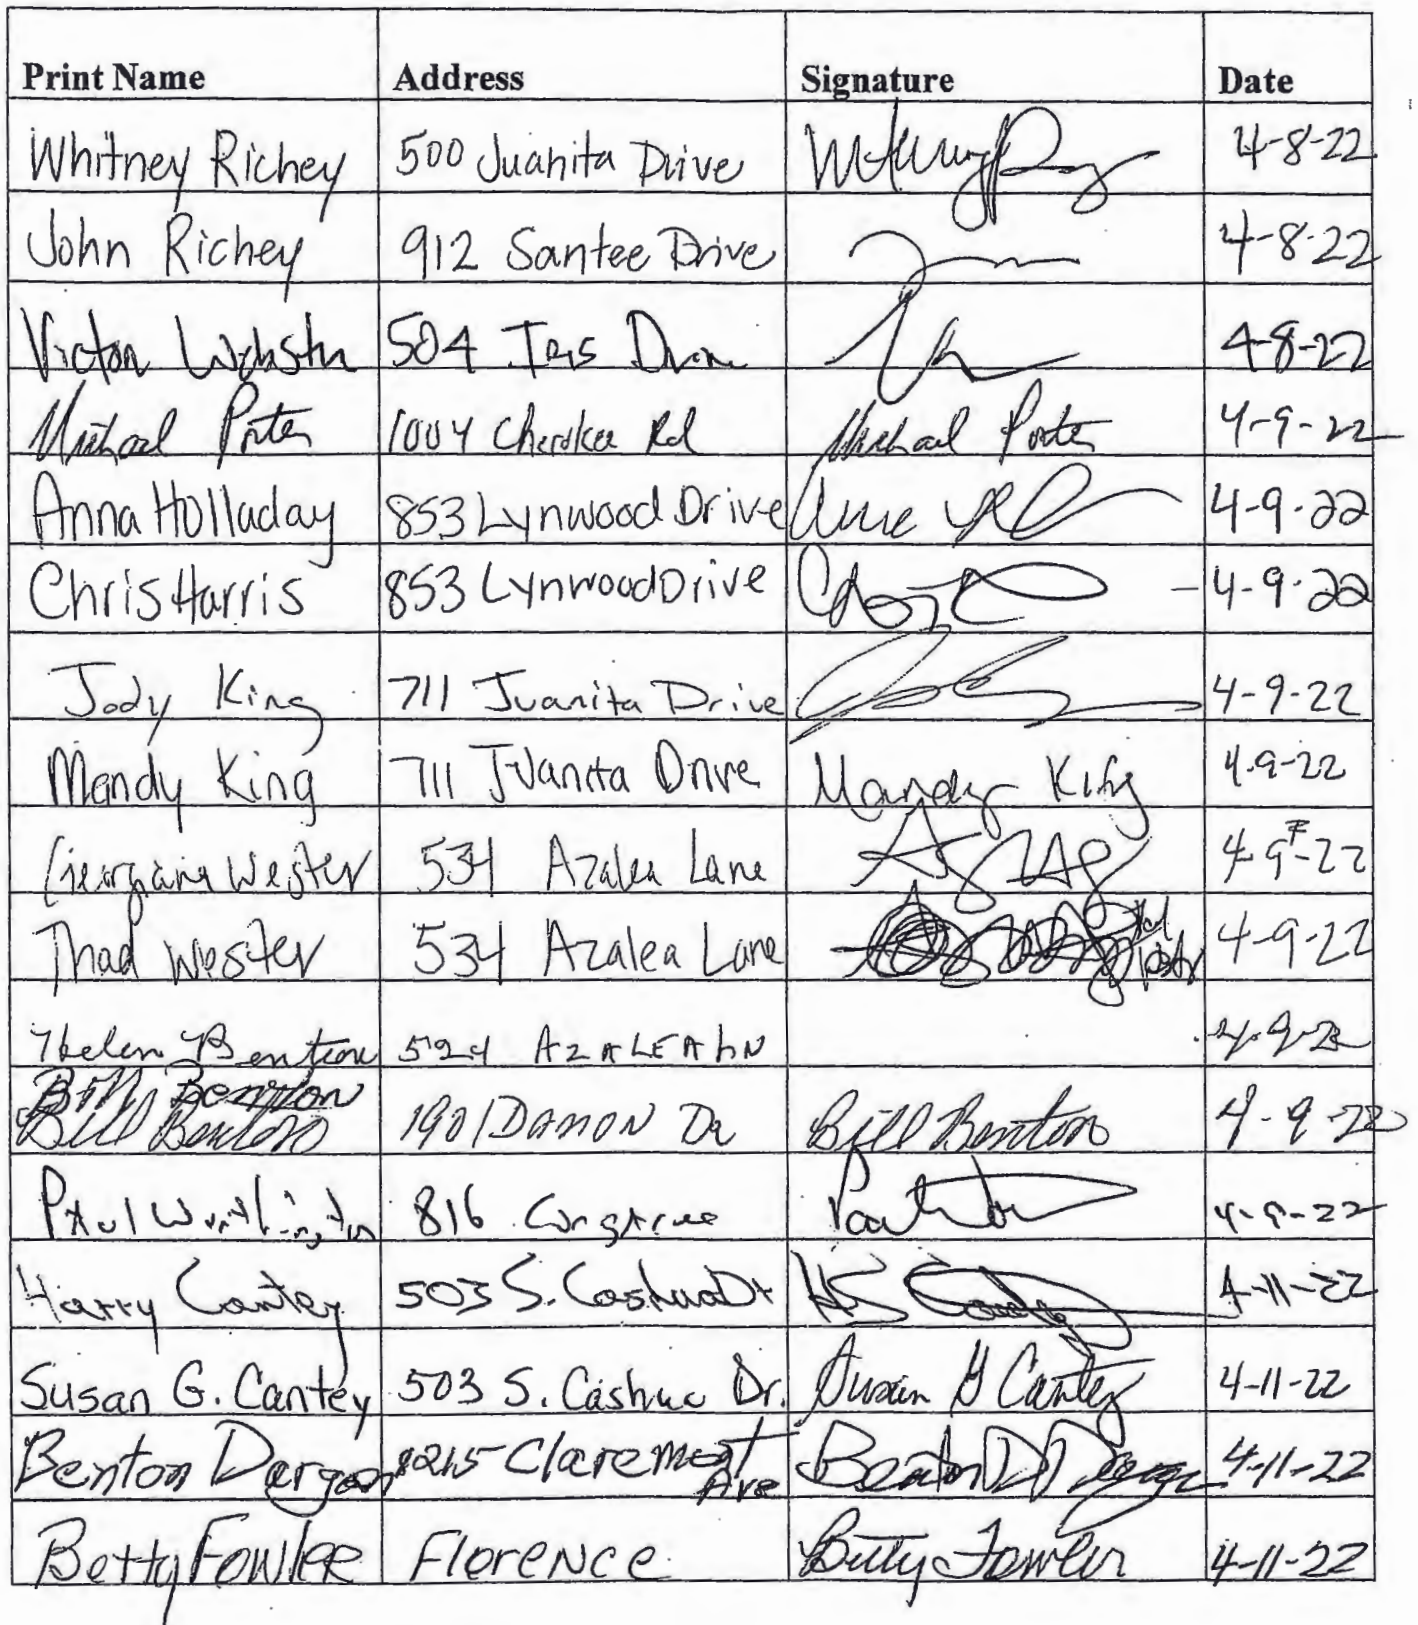 Print Name Address Signature Date
Whitney Richey 500 Juanita Drive 4-8-22
John Richey 912 Santee Drive 4-8-22
Victor Webster 504 Iris Drive 4-8-22
Michael Porter 1004 Cherokee Rd Michael Porter 4-9-22
Anna Holladay 853 Lynwood Drive 4-9-22
Chris Harris 853 Lynwood Drive 4-9-22
Jody King 711 Juanita Drive 4-9-22
Mandy King 711 Juanita Drive Mandy King 4-9-22
Georgiana Wester 534 Azalea Lane 4-9-22
Thad Wester 534 Azalea Lane 4-9-22
Helen Benton 524 AZALEA LN 4-9-22
Bill Benton
Bill Benton 1901 DAMON DR Bill Benton 4-9-22
Paul Worthington 816 Congaree 4-9-22
Harry Cantey 503 S. Cashua Dr 4-11-22
Susan G. Cantey 503 S. Cashua Dr. Susan G Cantey 4-11-22
Benton Dargan Claremont Ave Benton D Dargan 4-11-22
Betty Fowler Florence Betty Fowler 4-11-22